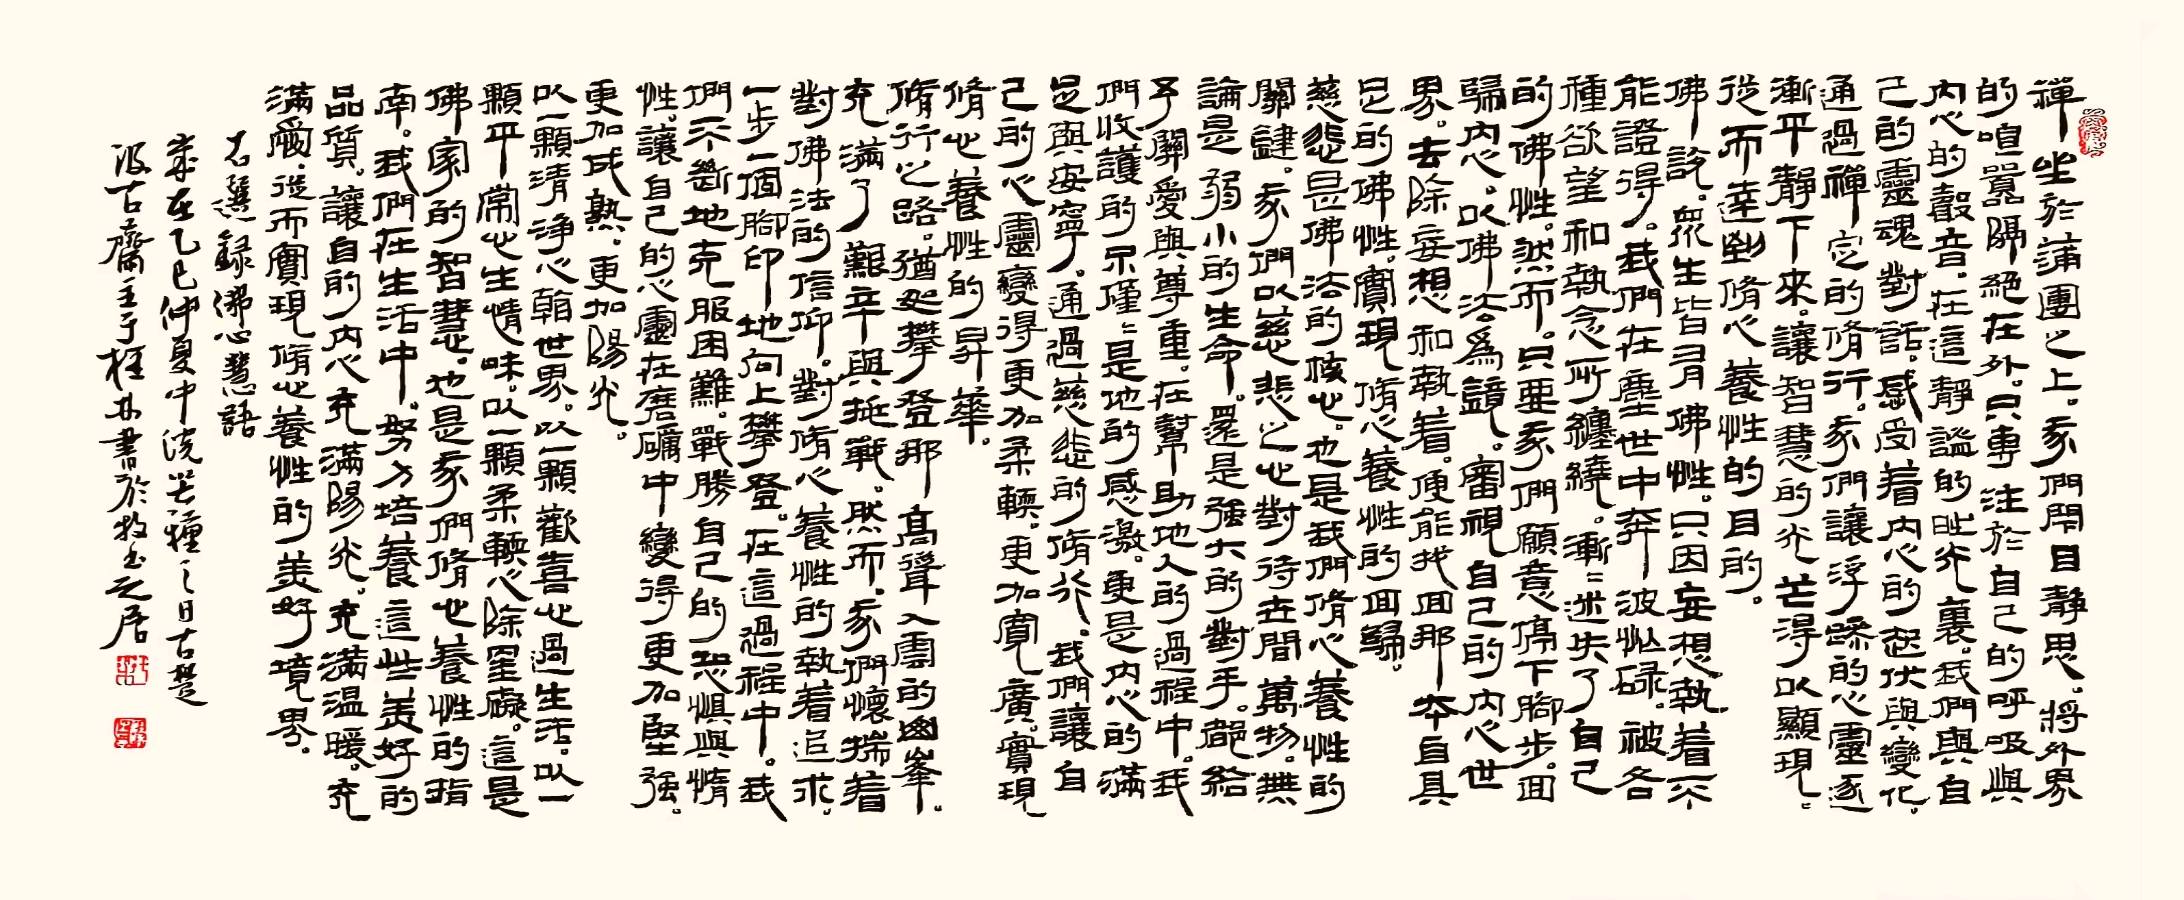 禪坐於蒲團之上。我們閉目靜思。將外界
的喧囂隔絕在外。只專注於自己的呼吸與
內心的聲音。在這靜謐的時光裏。我們與自
己的靈魂對話。感受着內心的起伏與變化。
通過禪定的脩行。我們讓浮躁的心靈逐
漸平靜下來。讓智慧的光芒得以顯現。
從而達到脩心養性的目的。
佛說。眾生皆有佛性。只因妄想執着不
能證得。我們在塵世中奔波忙碌。被各
種欲望和執念所纏繞。漸漸迷失了自己
的佛性。然而。只要我們願意停下腳步。回
歸內心。以佛法為鏡。審視自己的內心世
界。去除妄想和執着。便能找回那本自具
足的佛性。實現脩心養性的回歸。
慈悲是佛法的核心。也是我們脩心養性的
關鍵。我們以慈悲之心對待世間萬物。無
論是弱小的生命。還是強大的對手。都給
予關愛與尊重。在幫助他人的過程中。我
們收護的不僅僅是他的感激。更是內心的滿
足與安寧。通過慈悲的脩行。我們讓自
己的心靈變得更加柔輭。更加寬廣。實現
脩心養性的昇華。
脩行之路。猶如攀登那高聳入雲的幽峯。
充滿了艱辛與挑戰。然而。我們懷揣着
對佛法的信仰。對脩心養性的執着追求。
一步一個腳印地向上攀登。在這過程中。我
們不斷地克服困難。戰勝自己的恐懼與惰
性。讓自己的心靈在磨礪中變得更加堅強。
更加成熟。更加陽光。
以一顆清淨心翰世界。以一顆歡喜心過生活。以一
顆平常心生情味。以一顆柔輭心除罣礙。這是
佛家的智慧。也是我們脩心養性的指
南。我們在生活中。努力培養這些美好的
品質。讓自的內心充滿陽光。充滿溫暖。充
滿愛。從而實現脩心養性的美好境界。
右選錄佛心慧語
歲在乙巳仲夏中浣芒種之日古楚
汲古齋主于桂林書於牧玉之居